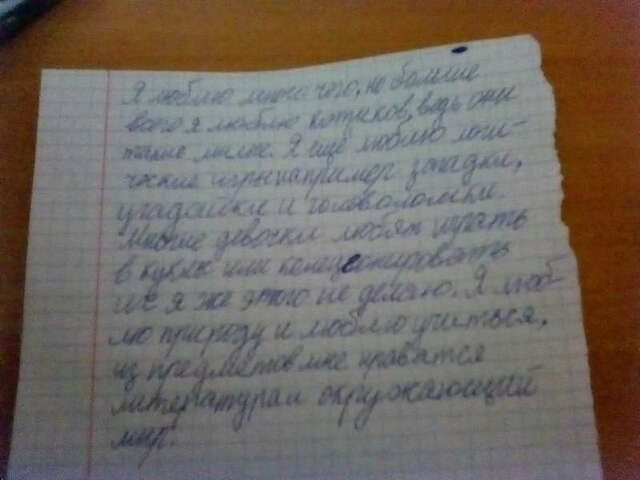 Я люблю много чего, но больше
всего я люблю котиков, ведь они
такие милые. Я ещё люблю логи-
ческие игры например загадки,
угадайки и головоломки.
Многие девочки любят играть
в кукок или колецеонировать
их я же этого не делаю. Я люб-
лю природу и люблю учиться,
из предметов мне нравятся
литература и окружающий
мир.